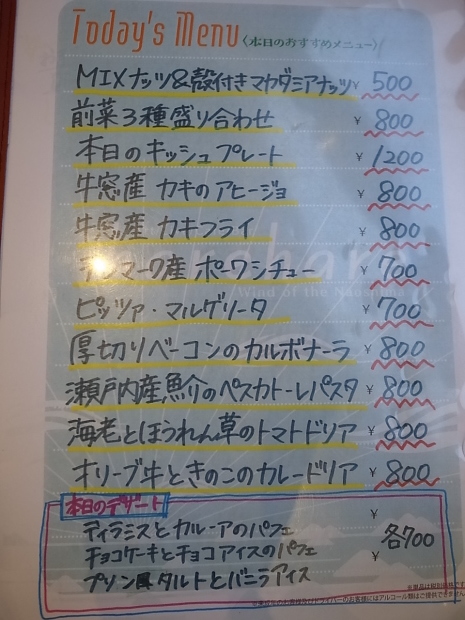 Today's Menu 〈本日のおすすめメニュー〉
MIXナッツ&殻付きマカダミアナッツ ¥ 500
前菜3種盛り合わせ ¥ 800
本日のキッシュプレート ¥ 1200
牛窓産 カキのアヒージョ ¥ 800
牛窓産 カキフライ ¥ 800
デンマーク産 ポークシチュー ¥ 700
ピッツァ・マルゲリータ ¥ 700
厚切りベーコンのカルボナーラ ¥ 800
瀬戸内産魚介のペスカトーレパスタ ¥ 800
海老とほうれん草のトマトドリア ¥ 800
オリーブ牛ときのこのカレードリア ¥ 800
Wind of the
本日のデザート
ティラミスとカルーアのパフェ ¥
チョコケーキとチョコアイスのパフェ ¥ 各700
プリン風タルトとバニラアイス